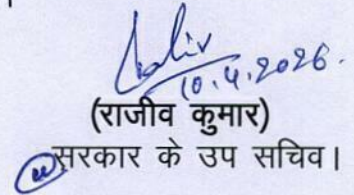 10.4.2026.
(राजीव कुमार)
सरकार के उप सचिव।